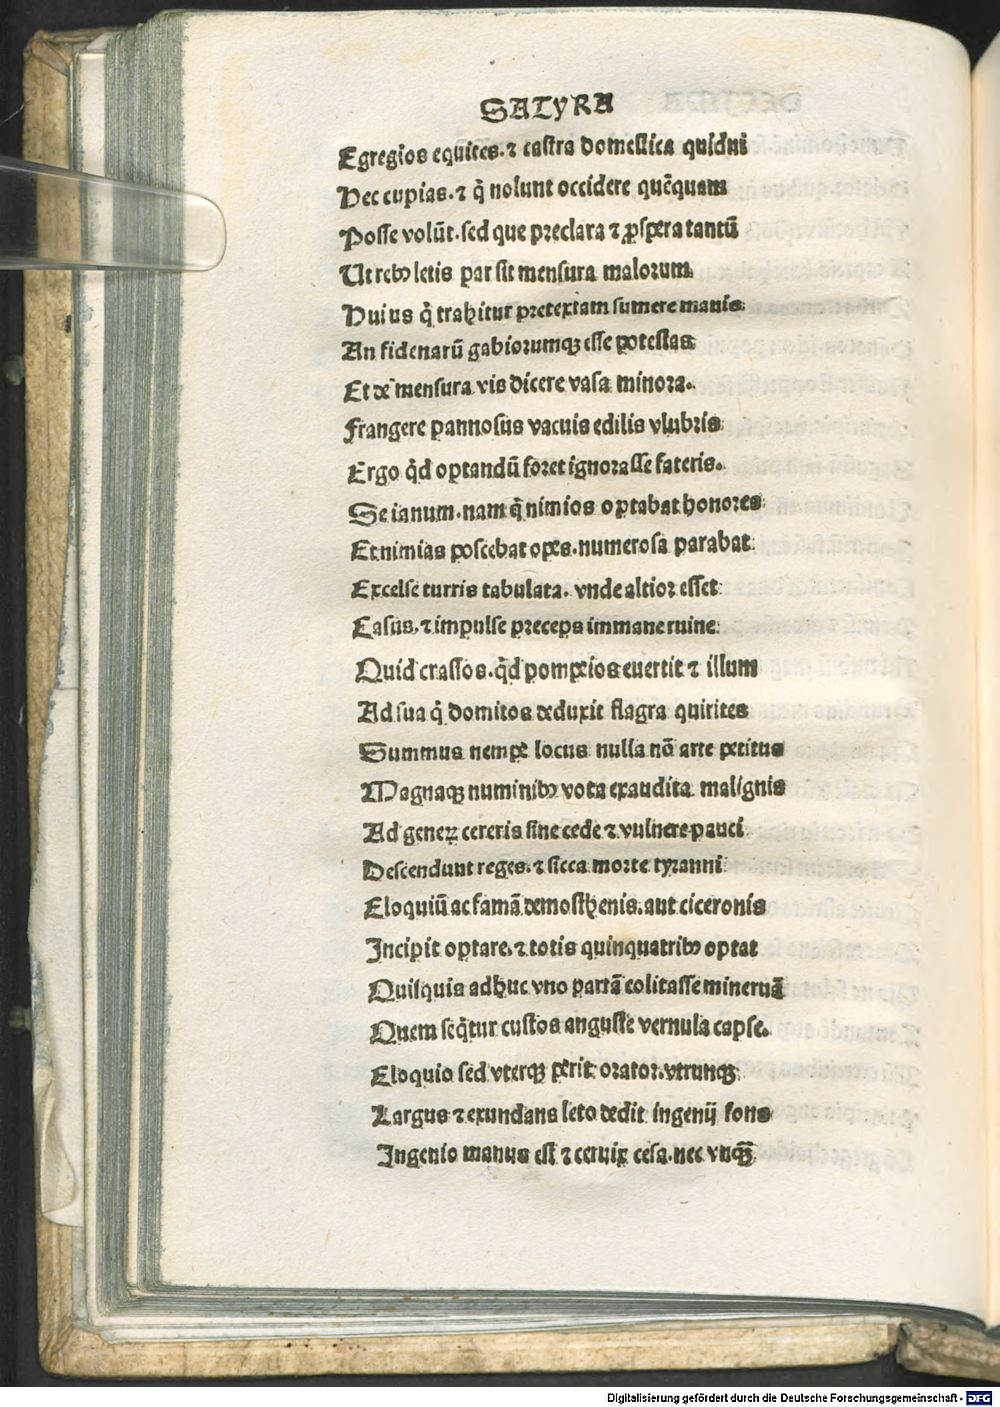 SATYRA
Egregios equites. ⁊ castra domestica quidni
Hec cupias. ⁊ q̇ nolunt occidere quēquam
Posse volūt. sed que preclara ⁊ ꝓspera tantū
Ut rebꝰ letis par sit mensura malorum
Huius q̇ trahitur pretextam sumere mauis
An fidenarū gabiorumqꝫ esse potestas
Et de mensura vis dicere vasa minora.
Frangere pannosus vacuis edilis vlubris
Ergo q̇d optandū foret ignorasse fateris.
Seianum. nam q̇ nimios optabat honores
Et nimias poscebat opes. numerosa parabat
Excelse turris tabulata. vnde altior esset
Casus. ⁊ impulse preceps immane ruine
Quid crassos. q̇d pompeios euertit ⁊ illum
Ad sua q̇ domitos deduxit flagra quirites
Summus nempe locus nulla nō arte petitus
Magnaqꝫ numinibꝰ vota exaudita malignis
Ad geneꝝ cereris sine cede ⁊ vulnere pauci
Descendunt reges. ⁊ sicca morte tyranni
Eloquiū ac famā demosthenis. aut ciceronis
Incipit optare. ⁊ totis quinquatribꝰ optat
Quisquis adhuc vno partā colitasse mineruā
Quem seq̇tur custos anguste vernula capse.
Eloquio sed vterqꝫ perit orator. vtrunqꝫ
Largus ⁊ exundans leto dedit ingenij fons
Ingenio manus est ⁊ ceruix cesa. nec vnqꝫ̄
Digitalisierung gefördert durch die Deutsche Forschungsgemeinschaft - DFG